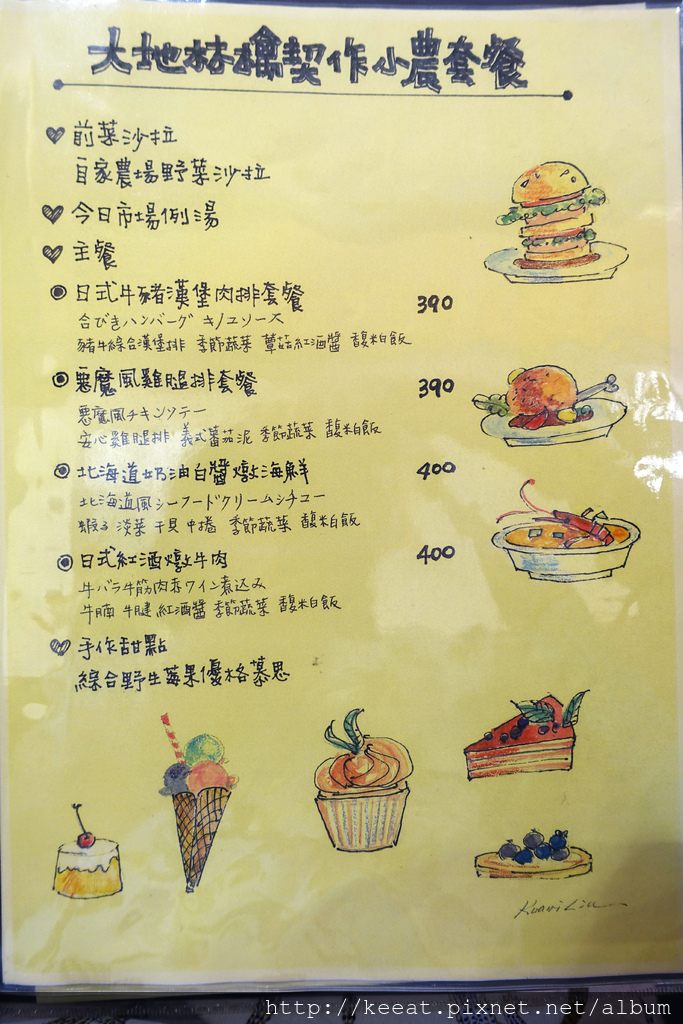 大地林檎契作小農套餐
前菜沙拉
自家農場野菜沙拉
今日市場例湯
主餐
日式牛豬漢堡肉排套餐 390
合びきハンバーグ キノコソース
豬牛綜合漢堡排 季節蔬菜 蕈菇紅酒醬 馥米白飯
惡魔風雞腿排套餐 390
悪魔風チキンソテー
安心雞腿排 義式蕃茄泥 季節蔬菜 馥米白飯
北海道奶油白醬燉海鮮 400
北海道風シーフードクリームシチュー
蝦子 淡菜 干貝 中捲 季節蔬菜 馥米白飯
日式紅酒燉牛肉 400
牛バラ牛筋肉赤ワイン煮込み
牛腩 牛腱 紅酒醬 季節蔬菜 馥米白飯
手作甜點
綜合野生莓果優格慕思
http://keeat.pixnet.net/album